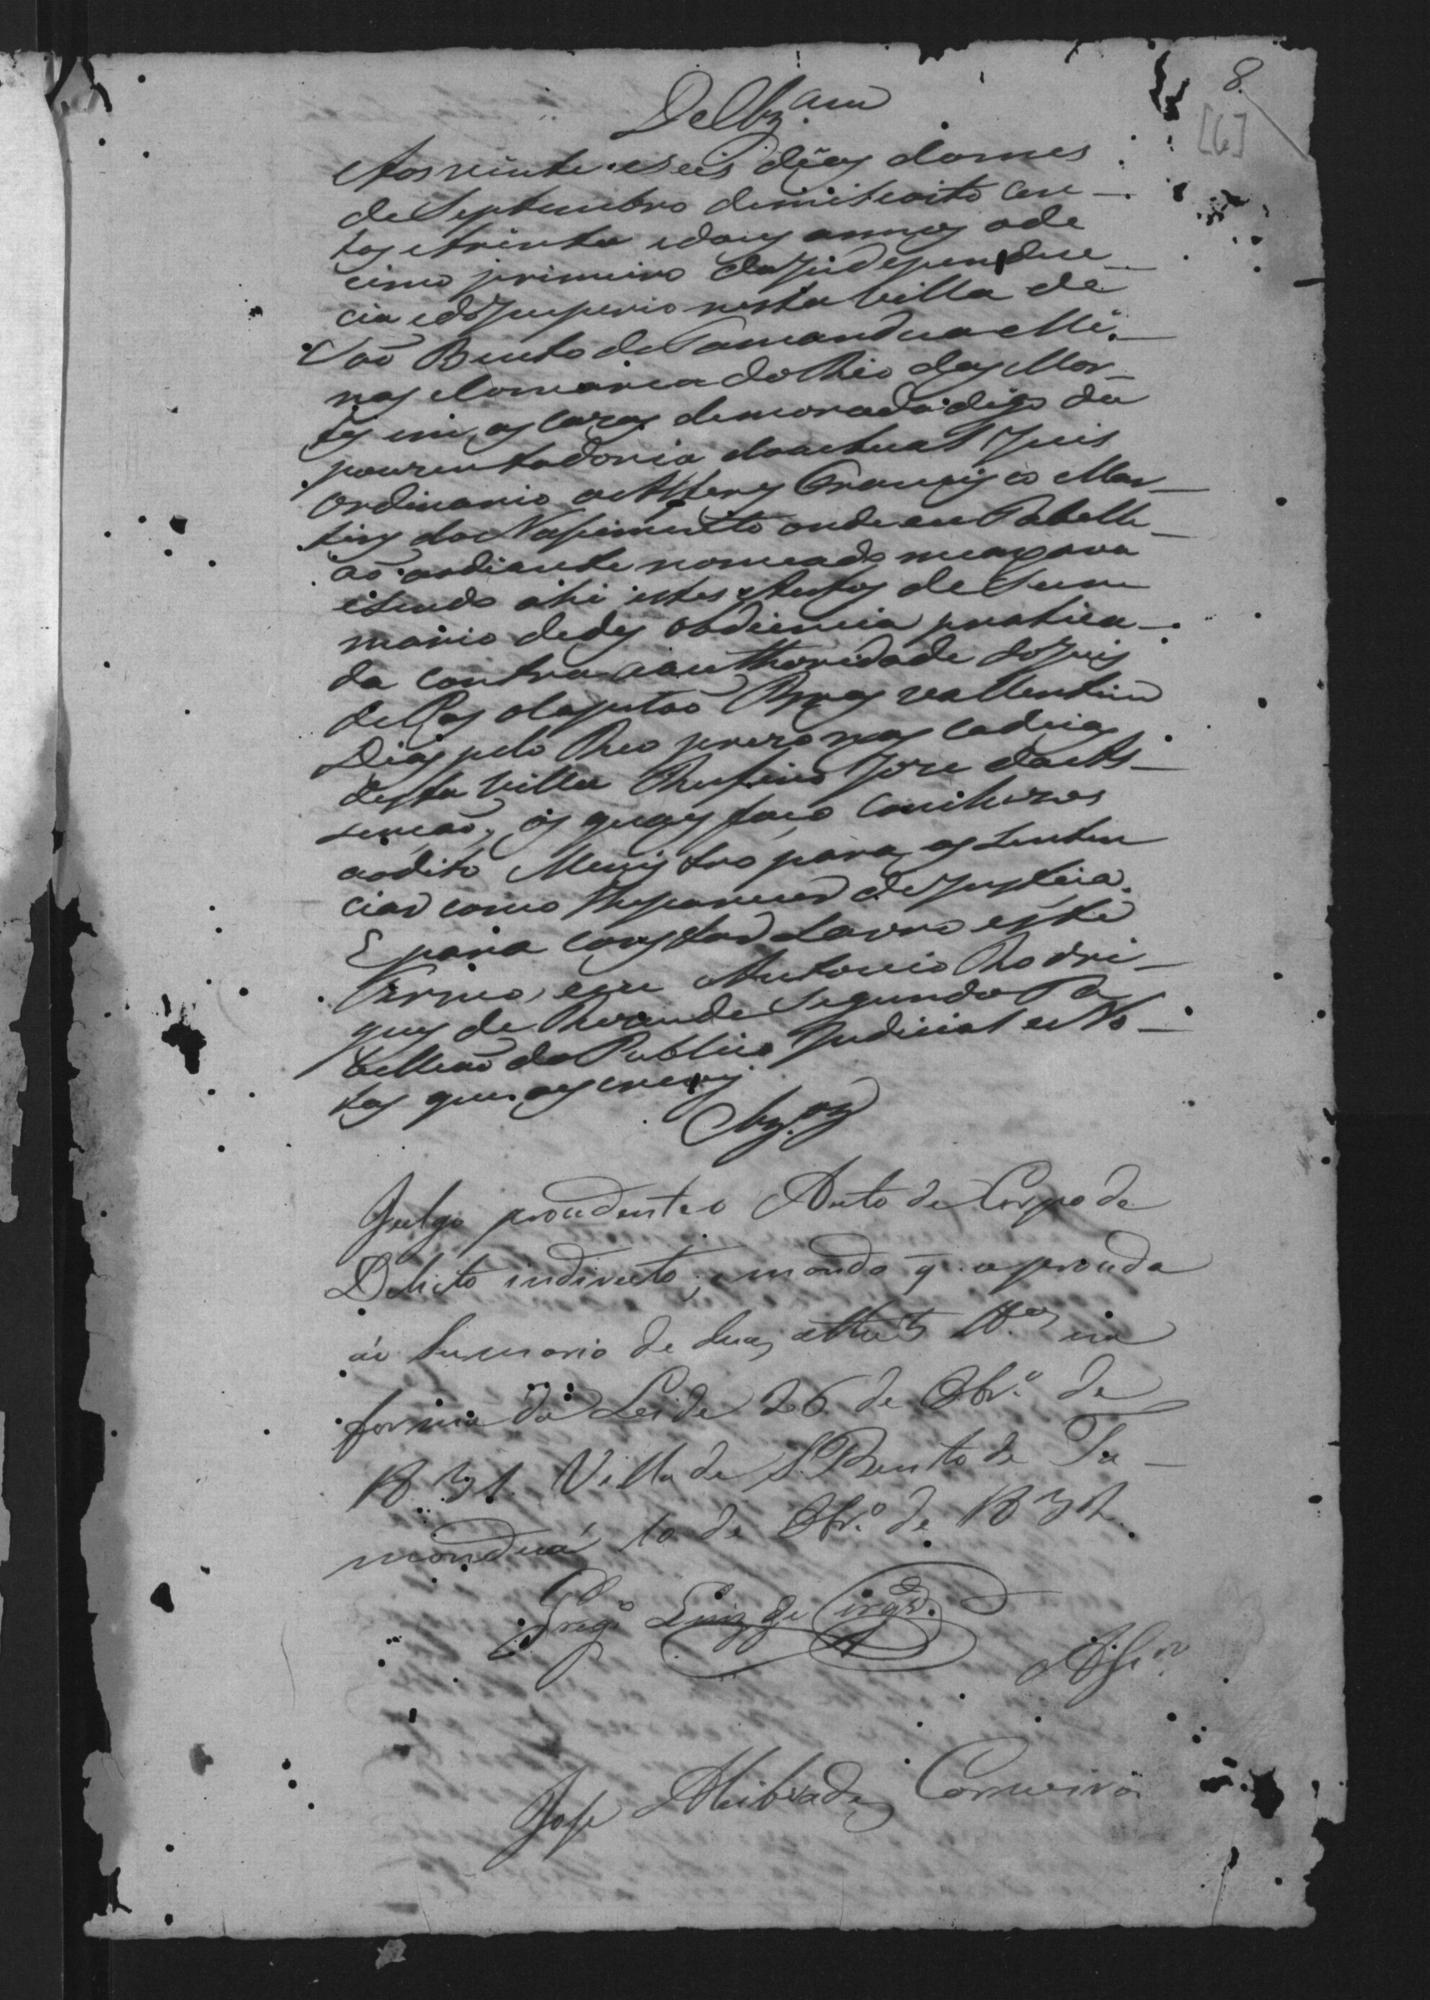 8
[6]
Aos vinte e seis dias do mes
de Septembro de mil e oito cen-
tos e trinta e dois annos o de
cimo primeiro da Independen-
cia e do Imperio nesta Villa de
São Bento de Tamandua Mi-
nas e Comarca do Rio das Mor-
tes em as cazas de morada digo da
pouzentadoria do actual Juis
Ordinario o Alferes Francisco Mar-
tins do Nascimento onde eu Tabelli-
ão ao diante nomeado me axava
e sendo ahi estes Autos de Sum
mario de des obdiencia pratica-
da contra a authoridade do Juis
de Pas Capitão Bras Vallentim
Dias pelo Reo prezo nas Cadeias
desta Villa Rufino Joze da As-
sencão, os quaes faço concluzos
ao dito Menistro para os senten
ciar como lhe parecer de Justicia.
E para constar Lavro este
Termo, e eu Antonio Rodri-
gues de Rezende Segundo Ta
bellião do Publico Judicial e No-
tas que os escrevy
Julgo procedente o Auto de Corpo de
Delicto indirecto, e mando q. se proceda
ao Sumario de duas athe 3 tt.as na
forma da Lei de 26 de 8br.o de
1831. Villa de S. Bento de Ta-
manduá 10 de 8br.o de 1832.
Luiz de Cirqr.a
Jose Alcibiades Carneiro